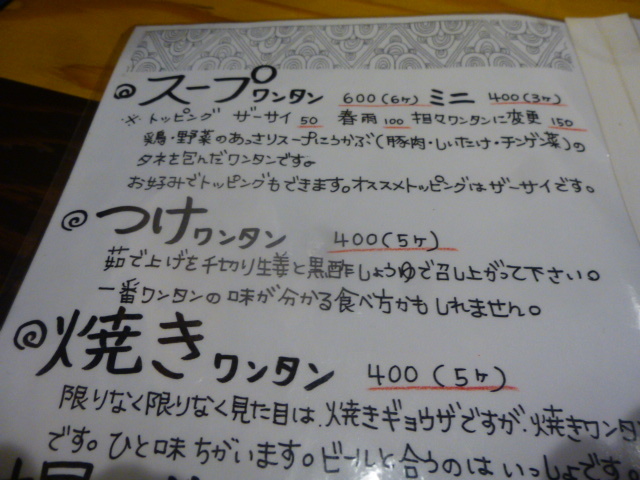 スープワンタン 600(6ヶ) ミニ 400(3ヶ)
※トッピング ザーサイ 50 春雨 100 担々ワンタンに変更 150
鶏・野菜のあっさりスープにうかぶ(豚肉・しいたけ・チンゲン菜)の
タネを包んだワンタンです。
お好みでトッピングもできます。オススメトッピングはザーサイです。
つけワンタン 400(5ヶ)
茹で上げを千切り生姜と黒酢しょうゆで召し上がって下さい。
一番ワンタンの味が分かる食べ方かもしれません。
焼きワンタン 400(5ヶ)
限りなく限りなく見た目は、焼きギョウザですが、焼きワンタン
です。ひと味ちがいます。ビールと合うのはいっしょです。